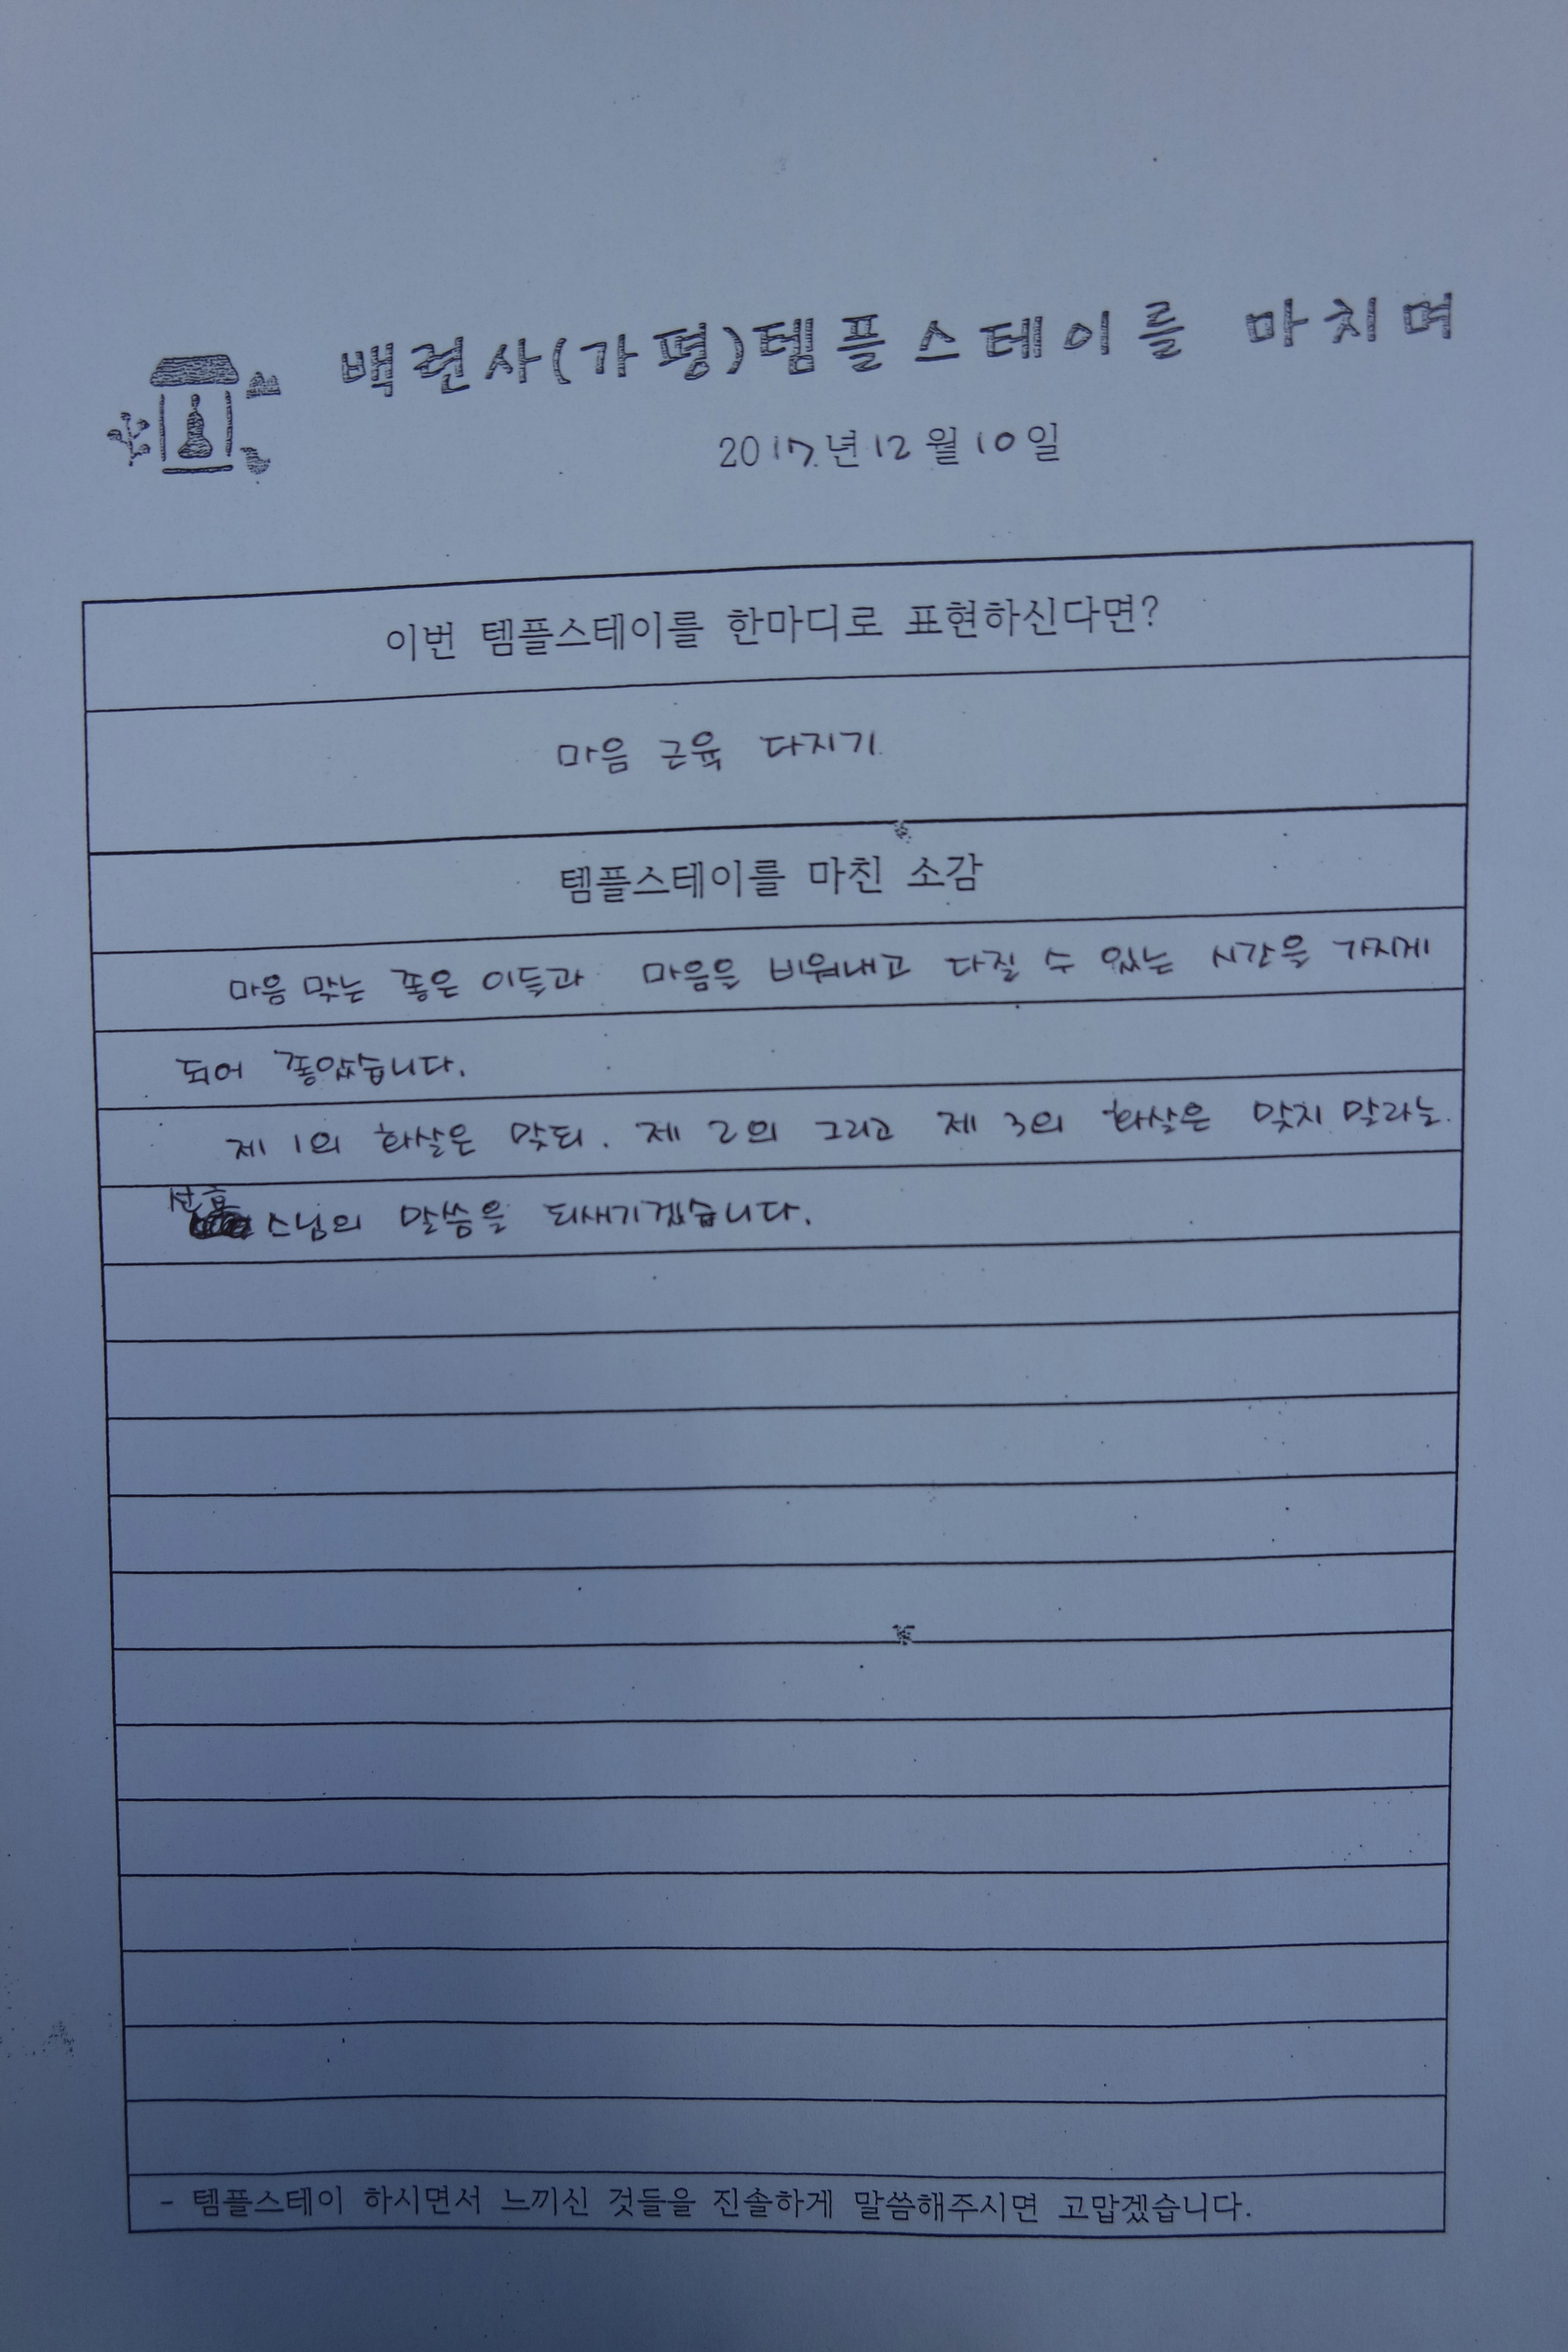 백련사(가평)템플스테이를 마치며
2017년 12월 10일
이번 템플스테이를 한마디로 표현하신다면?
마음 근육 다지기
템플스테이를 마친 소감
마음 맞는 좋은 이들과 마음을 비워내고 다질 수 있는 시간을 가지게
되어 좋았습니다.
제 1의 화살은 맞되, 제 2의 그리고 제 3의 화살은 맞지 말라는
스님의 말씀을 되새기겠습니다.
- 템플스테이 하시면서 느끼신 것들을 진솔하게 말씀해주시면 고맙겠습니다.